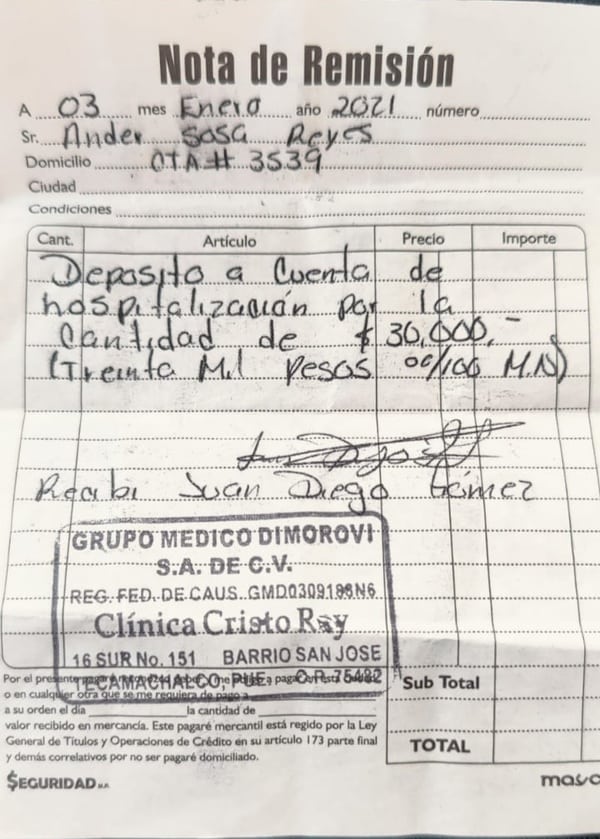 Nota de Remisión
A 03 mes Enero año 2021 número
Sr. Ander Sosa Reyes
Domicilio CTA # 3539
Ciudad
Condiciones
Cant. Artículo Precio Importe
Deposito a Cuenta de
hospitalización por la
Cantidad de $ 30,000.-
(Treinta Mil Pesos 00/100 M.N)
Recibi Juan Diego Gómez
GRUPO MEDICO DIMOROVI
S.A. DE C.V.
REG. FED. DE CAUS. GMD0309188N6
Clínica Cristo Rey
16 SUR No. 151 BARRIO SAN JOSE
TECAMACHALCO, PUE. C.P. 75482
Por el presente
o en cualquier otra que se me requiera de pago a
a su orden el día la cantidad de
valor recibido en mercancía. Este pagaré mercantil está regido por la Ley
General de Títulos y Operaciones de Crédito en su artículo 173 parte final
y demás correlativos por no ser pagaré domiciliado.
Sub Total
TOTAL
$EGURIDAD